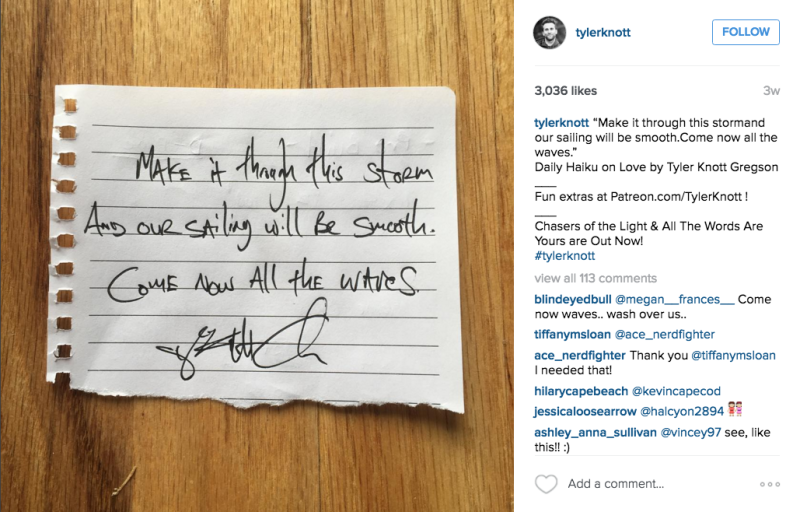 MAKE it through this storm
AND our sailing will be smooth.
Come now all the waves.
tylerknott
FOLLOW
3,036 likes
3w
tylerknott “Make it through this stormand
our sailing will be smooth.Come now all the
waves.”
Daily Haiku on Love by Tyler Knott Gregson
___
Fun extras at Patreon.com/TylerKnott !
___
Chasers of the Light & All The Words Are
Yours are Out Now!
#tylerknott
view all 113 comments
blindeyedbull @megan__frances__ Come
now waves.. wash over us..
tiffanymsloan @ace_nerdfighter
ace_nerdfighter Thank you @tiffanymsloan
I needed that!
hilarycapebeach @kevincapecod
jessicaloosearrow @halcyon2894 👭
ashley_anna_sullivan @vincey97 see, like
this!! :)
Add a comment...